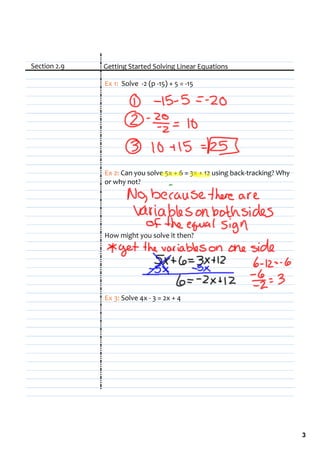 Section 2.9 Getting Started Solving Linear Equations
Ex 1: Solve -2 (p -15) + 5 = -15
① -15-5 = -20
② -20/-2 = 10
③ 10 +15 = 25
Ex 2: Can you solve 5x + 6 = 3x + 12 using back-tracking? Why
or why not?
No, because there are
variables on both sides
of the equal sign
How might you solve it then?
*get the variables on one side
5x+6=3x+12 6-12=-6
-5x -5x -6/-2=3
6=-2x+12
Ex 3: Solve 4x - 3 = 2x + 4
3